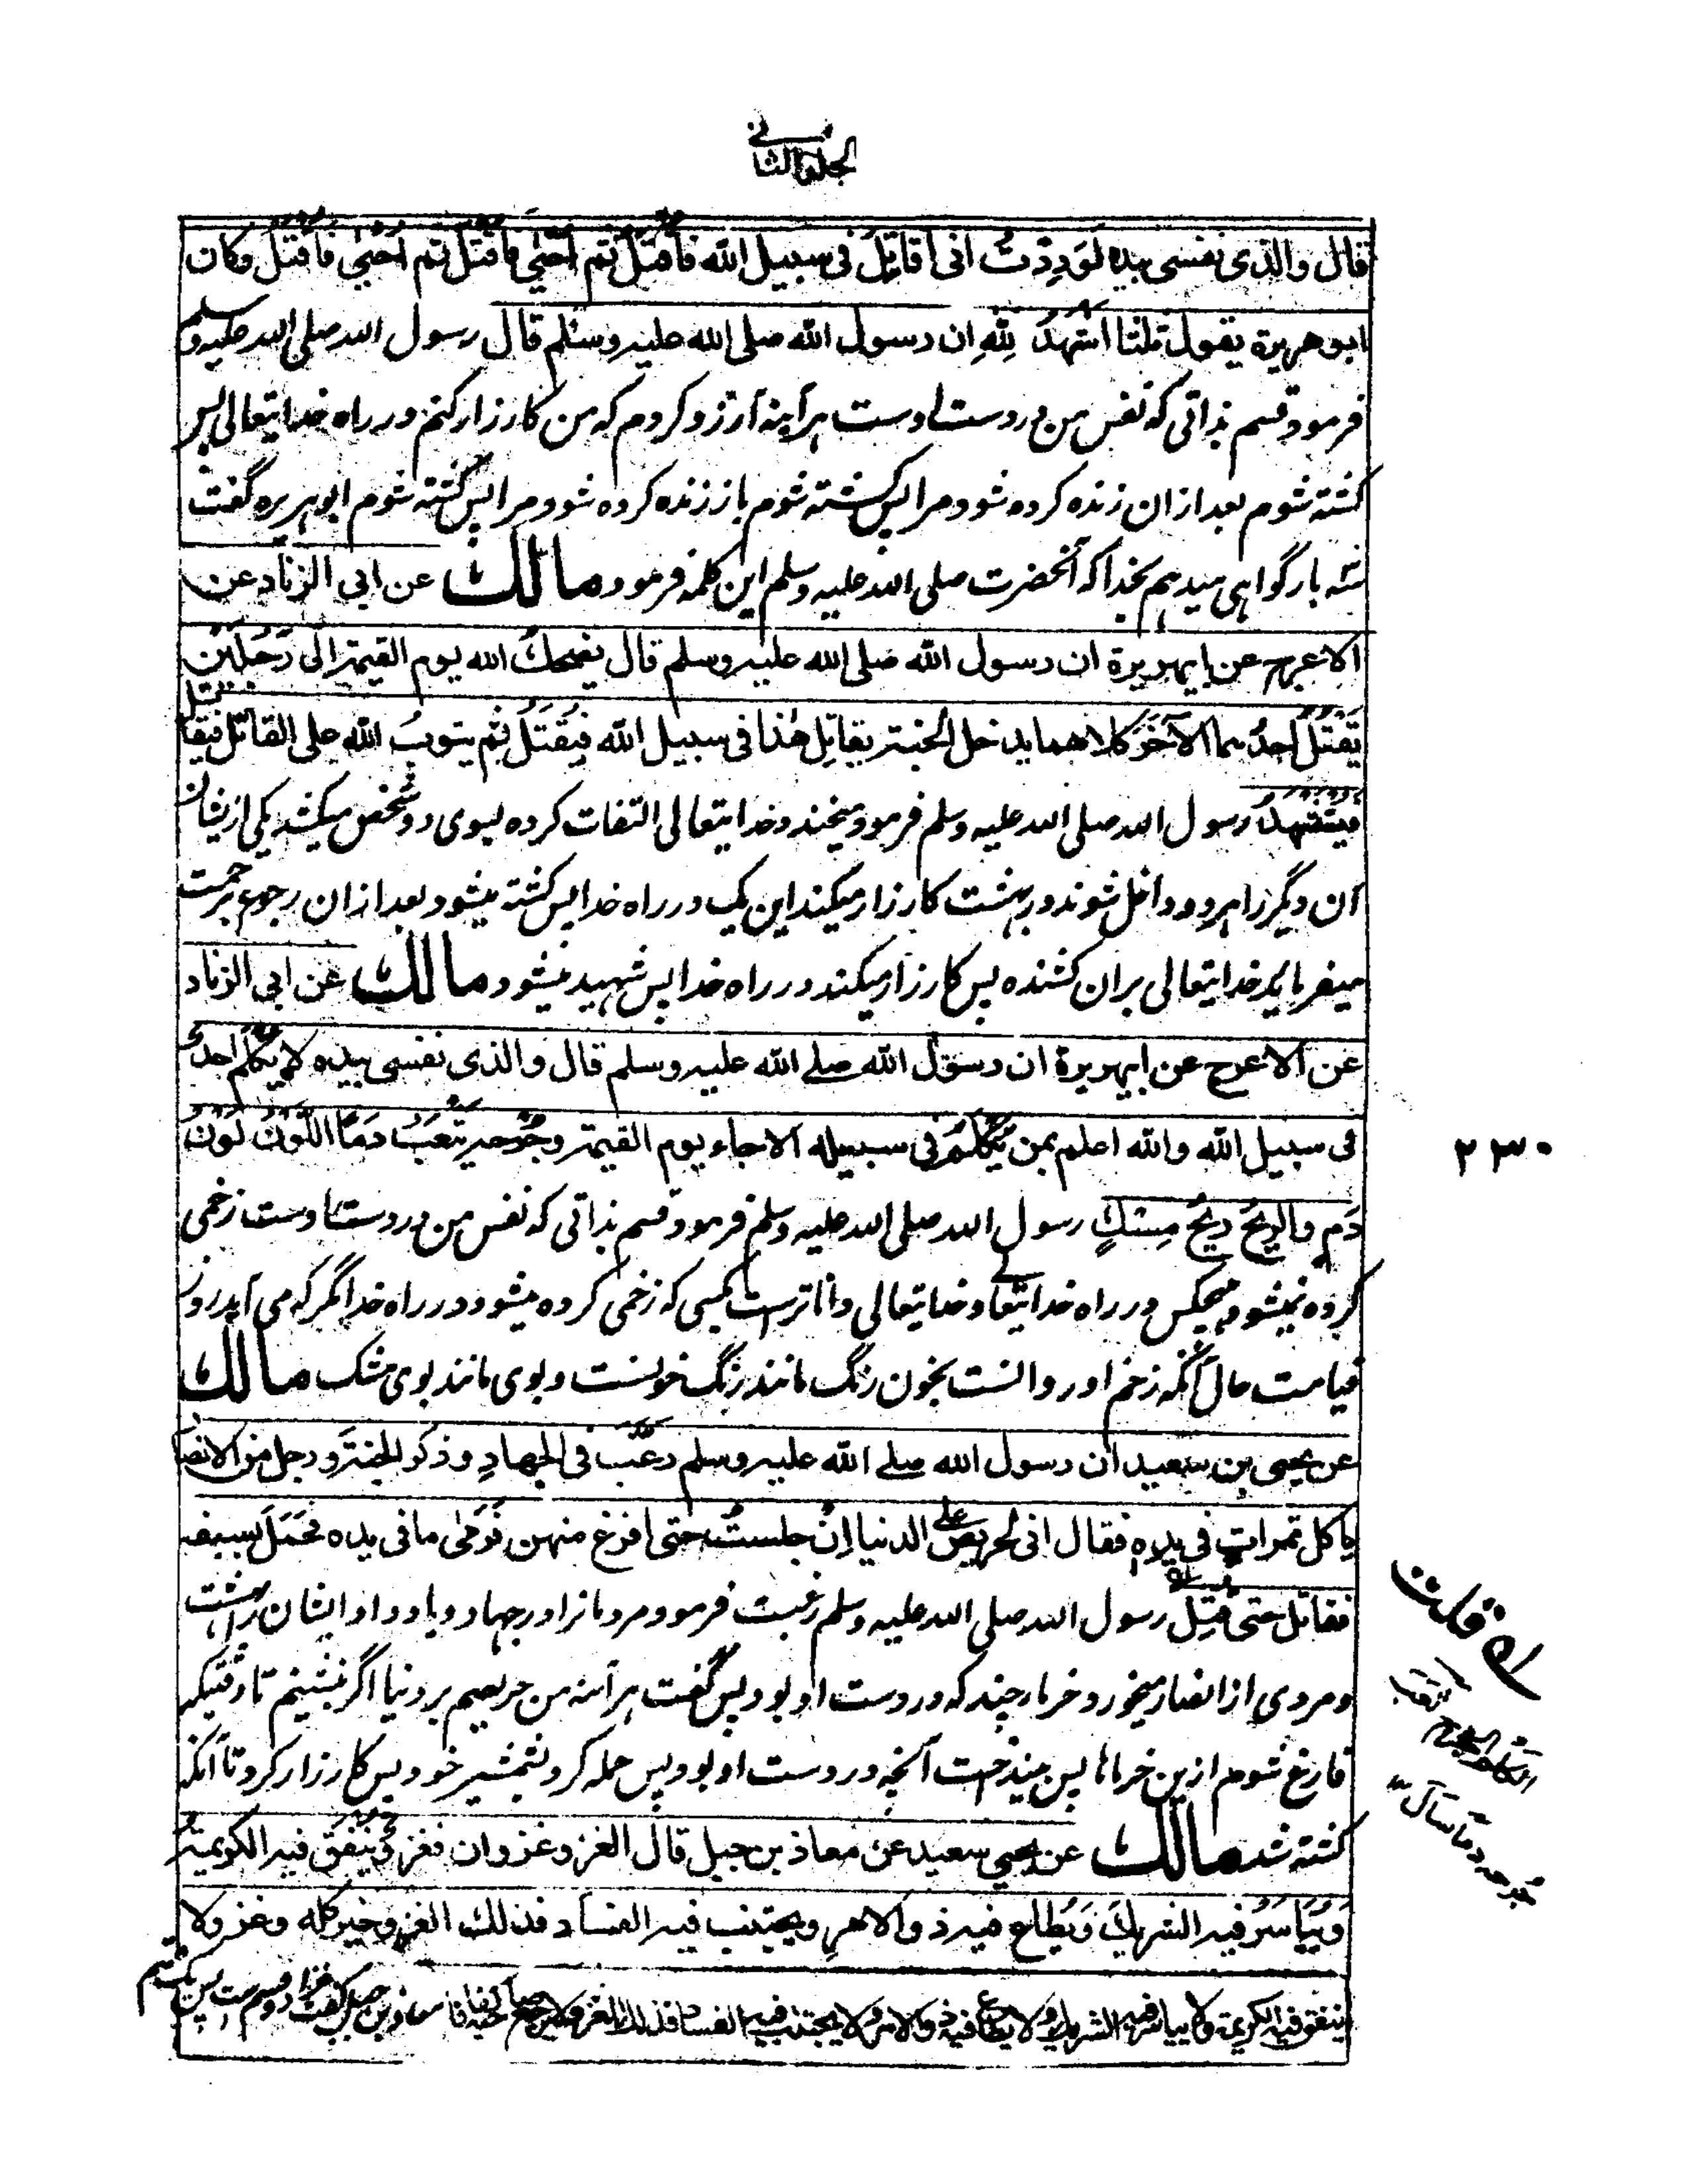 الجلد الثانی
قال والذی نفسی بیده لَوَدِدْتُ انی اُقاتِلُ فی سبیل الله فاُقتَلُ ثم اُحیٰی فاُقتَلُ ثم اُحیٰی فاُقتَلُ وکان
ابو هریرة یقول ثلثا اشهَدُ لِلّٰهِ ان رسول الله صلی الله علیه وسلم قال رسول الله صلی الله علیه وسلم
فرمود قسم بذاتی که نفس من در دست اوست هرآینه آرزو کردم که من کارزار کنم در راه خدایتعالی پس
کشته شوم بعد ازان زنده کرده شود مرا پس کشته شوم باز زنده کرده شود مرا پس کشته شوم ابو هریره گفت
سه بار گواهی میدهم بخدا که آنحضرت صلی الله علیه وسلم این کلمه فرمود مالك عن ابی الزناد عن
الاعرج عن ابیهریرة ان رسول الله صلی الله علیه وسلم قال یضحكُ الله یوم القیمة الی رَجُلَیْن
یَقْتُلُ احدُهما الآخَرَ کلاهما یدخل الجنة یقاتِل هٰذا فی سبیل الله فیُقتَلُ ثم یتوبُ الله علی القاتل فیقاتل
فیُسْتَشْهَدُ رسول الله صلی الله علیه وسلم فرمود میخندد خدایتعالی التفات کرده بسوی دو شخص میکشد یکی ازیشان
آن دیگر را هر دو داخل شوند در بهشت کارزار میکند این یک در راه خدا پس کشته میشود بعد ازان رجوع برحمت
میفرماید خدایتعالی بران کشنده پس کارزار میکند در راه خدا پس شهید میشود مالك عن ابی الزناد
عن الاعرج عن ابیهریرة ان رسول الله صلے الله علیه وسلم قال والذی نفسی بیده لا یُکْلَم احدٌ
فی سبیل الله والله اعلم بمن یُکْلَمُ فی سبیله الا جاء یوم القیمة وجُرحه یَثْعَبُ دَمًا اللَّوْنُ لَوْنُ
دَمٍ والریحُ ریحُ مِسْكٍ رسول الله صلی الله علیه وسلم فرمود قسم بذاتی که نفس من در دست اوست زخمی
کرده نمیشود هیچکس در راه خدایتعالے و خدایتعالی داناترست بکسی که زخمی کرده میشود در راه خدا مگر که می آید روز
قیامت حال آنکه زخم او روانست بخون رنگ مانند رنگ خونست و بوی مانند بوی مشک مالك
عن یحیی بن سعید ان رسول الله صلے الله علیه وسلم رغَّب فی الجهادِ وذکر الجنةَ ورجل من الانصار
یاکل تمراتٍ فی یدهِ فقال انی لحریصٌ علے الدنیا اِنْ جلستُ حتی افرغ منهن فرَمٰی ما فی یده فحَمَلَ بسیفه
فقاتل حتی قُتِلَ رسول الله صلی الله علیه وسلم رغبت فرمود مردمانرا در جهاد و یاد داد ایشان را بهشت
و مردی از انصار میخورد خرما چند که در دست او بود پس گفت هرآینه من حریصم بر دنیا اگر بنشینم تا وقتیکه
فارغ شوم ازین خرماها پس بینداخت آنچه در دست او بود پس حمله کرد بشمشیر خود پس کارزار کرد تا آنکه
کشته شد مالك عن یحیی سعید عن معاذ بن جبل قال الغزو غزوان فغزوٌ یُنفَق فیه الکریمة
وَیُیَاسَرُ فیه الشریكُ وَیُطاع فیه ذو الامرِ ویجتنب فیه الفسادُ فذلك الغزو خیر کله وغزو لا
ینفق فیه الکریمة ولا ییاسر فیه الشریك ولا یطاع فیه ذو الامر ولا یجتنب فیه الفساد فذلك الغزو لا یرجع صاحبه کفافا معاذ بن جبل گفت غزا دو قسم ست پس یک قسم
۲۳۰
قلت